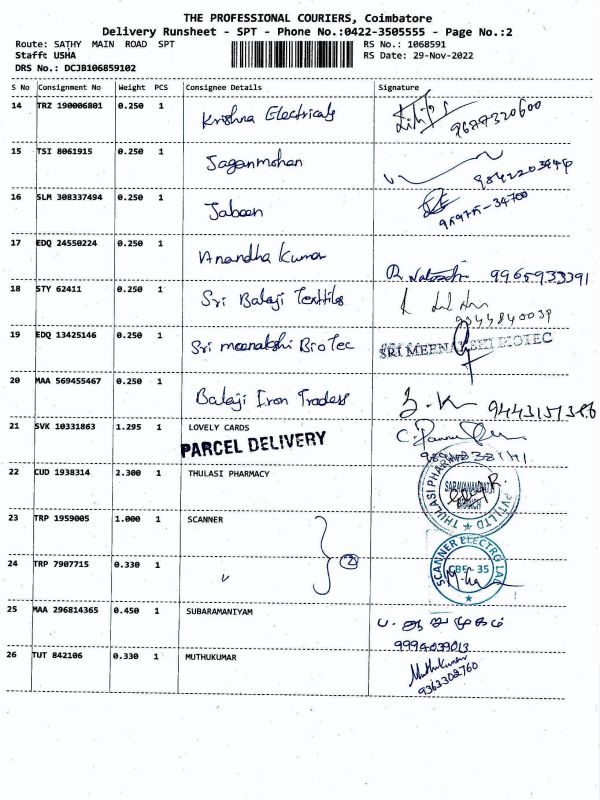 THE PROFESSIONAL COURIERS, Coimbatore
Delivery Runsheet - SPT - Phone No.:0422-3505555 - Page No.:2
Route: SATHY MAIN ROAD SPT RS No.: 1068591
Staff: USHA RS Date: 29-Nov-2022
DRS No.: DCJB106859102
S No Consignment No Weight PCS Consignee Details Signature
14 TRZ 190006801 0.250 1 Krishna Electricals
15 TSI 8061915 0.250 1 Jaganmohan
16 SLM 308337494 0.250 1 Jabeen
17 EDQ 24550224 0.250 1 Anandha Kumar 9965933391
18 STY 62411 0.250 1 Sri Balaji Textiles
9344840039
19 EDQ 13425146 0.250 1 Sri meenakshi BioTec SRI MEENAKSHI BIOTEC
20 MAA 569455467 0.250 1 Balaji Iron Traders
21 SVK 10331863 1.295 1 LOVELY CARDS
PARCEL DELIVERY
22 CUD 1938314 2.300 1 THULASI PHARMACY THULASI PHARMACY PVT LTD
23 TRP 1959005 1.000 1 SCANNER
24 TRP 7907715 0.330 1 〃 2 SCANNER ELECTRO LAB CBE - 35
25 MAA 296814365 0.450 1 SUBARAMANIYAM
9994039013
26 TUT 842106 0.330 1 MUTHUKUMAR Muthukumar
9363302760